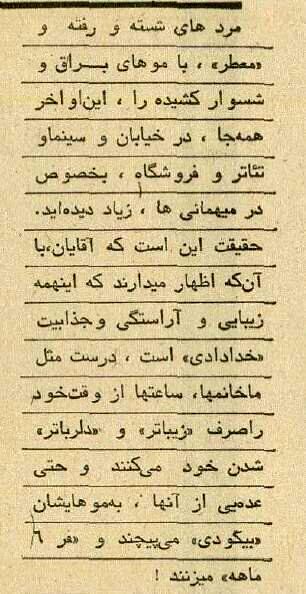 مرد های شسته و رفته و
«معطر» ، با موهای بــراق و
شسوار کشیده را ، این‌اواخر
همه‌جا ، در خیابان و سینماو
تئاتر و فروشگاه ، بخصوص
در میهمانی ها ، زیاد دیده‌اید.
حقیقت این است که آقایان،با
آن‌که اظهار میدارند که اینهمه
زیبایی و آراستگی و جذابیت
«خدادادی» است ، درست مثل
ماخانمها، ساعتها از وقت‌خود
راصرف «زیباتر» و «دلرباتر»
شدن خود می‌کنند و حتی
عده‌یی از آنها ، به‌موهایشان
«بیگودی» می‌پیچند و «فر ۶
ماهه» میزنند !